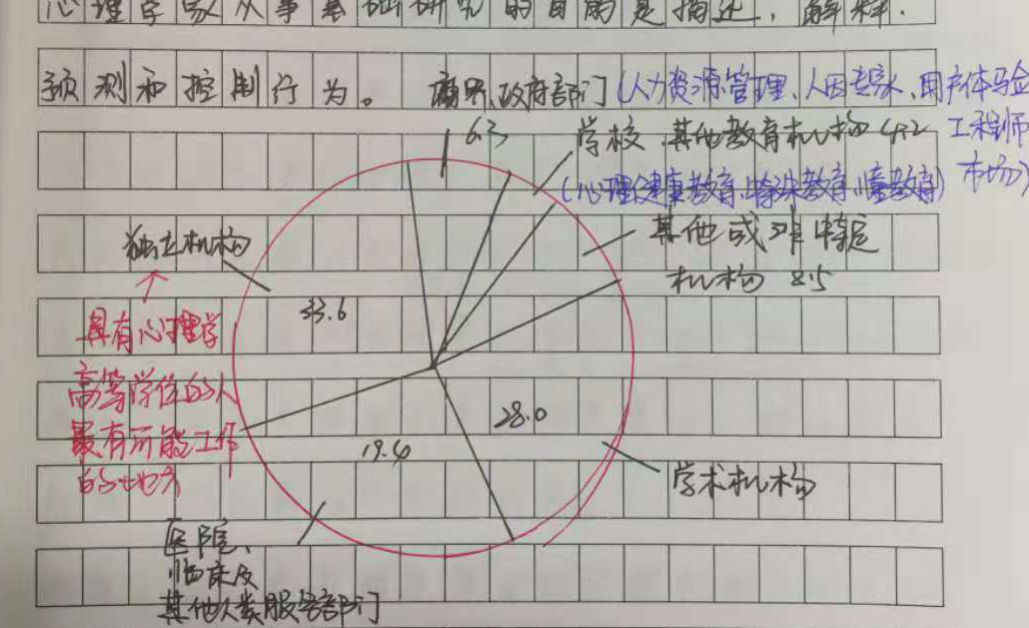 心理学家从事基础研究的目的是描述,解释.
预测和控制行为。
商界,政府部门(人力资源管理、人因专家、用户体验
工程师
市场)
6.3
学校、其他教育机构 4.2
(心理健康教育、特殊教育、教育)
其他或难特定
机构 8.5
独立机构
33.6
具有心理学
高等学位的人
最有可能工作
的地方
28.0
19.4
学术机构
医院、
临床及
其他人类服务部门